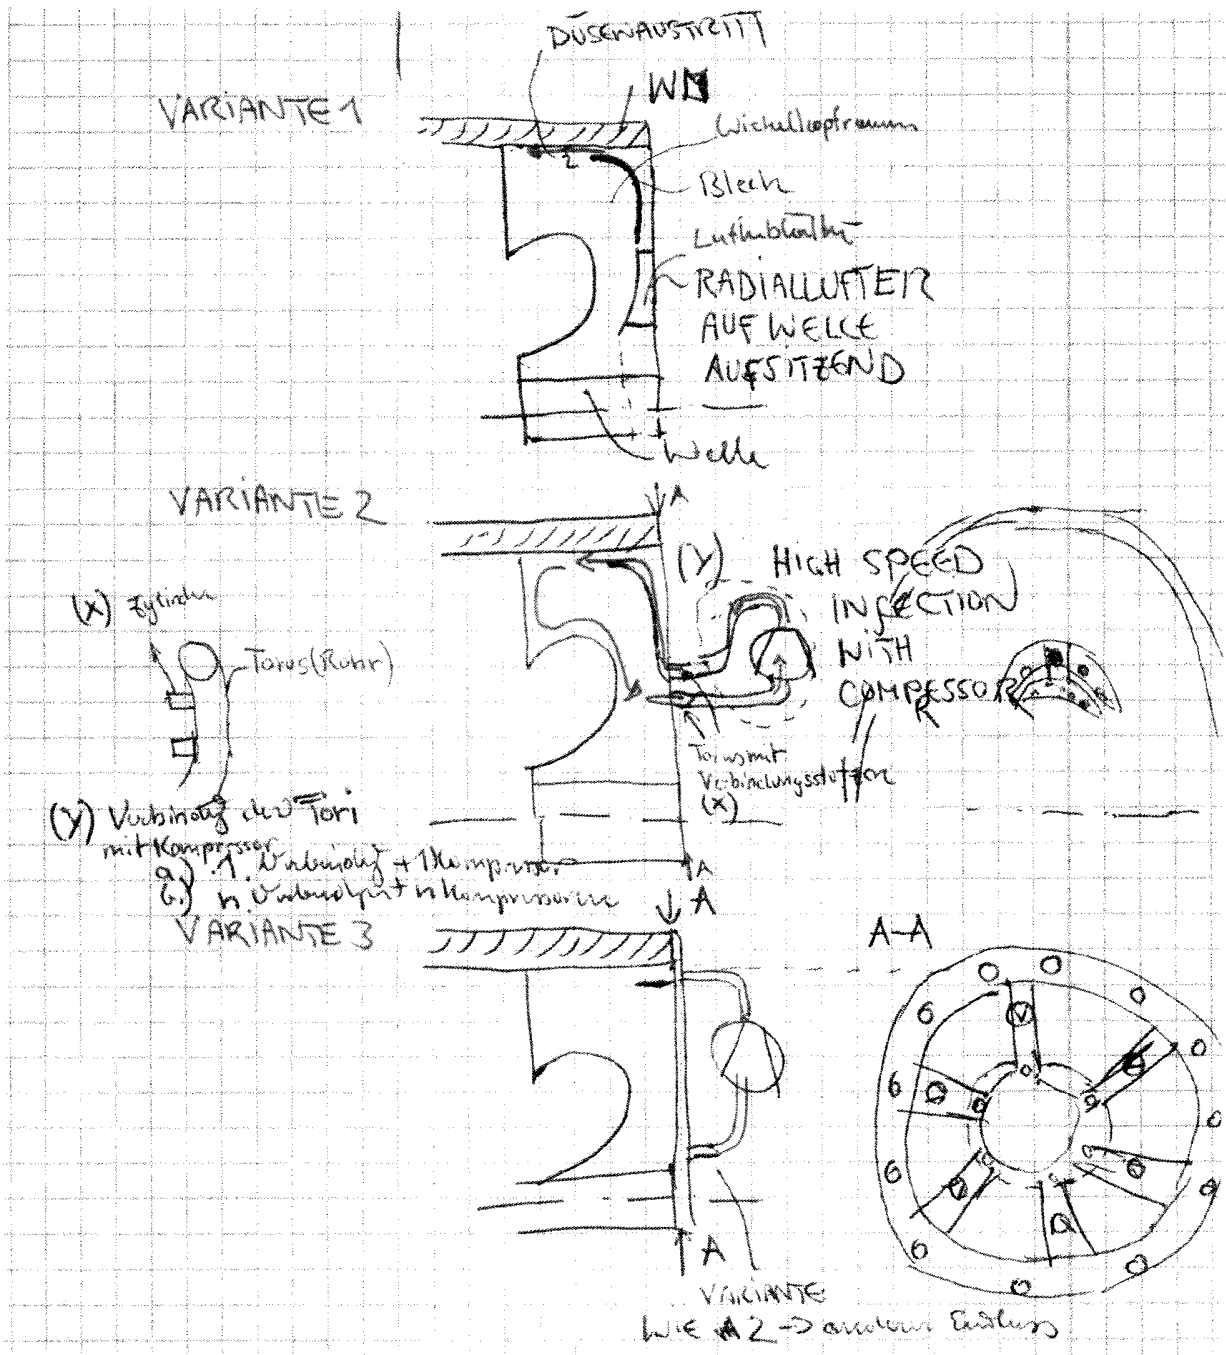 DÜSENAUSTRITT
VARIANTE 1
Wickelkopfraum
Blech
RADIALLÜFTER
AUF WELLE
AUFSITZEND
Welle
VARIANTE 2
A
(Y) HIGH SPEED
INJECTION
WITH
COMPRESSOR
(X) Zylinder
Torus (Rohr)
Torus mit
Verbindungsstutzen
(X)
(Y) Verbindung der Tori
mit Kompressor
a.) 1. Verbindung + 1 Kompressor
b.) n Verbindungen + n Kompressoren
A
A
VARIANTE 3
A-A
A
VARIANTE
WIE A2 →